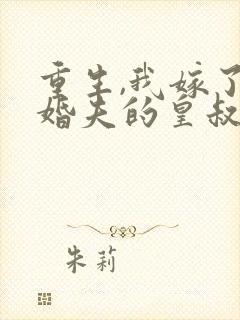 重生,我嫁了
婚夫的皇叔
朱莉